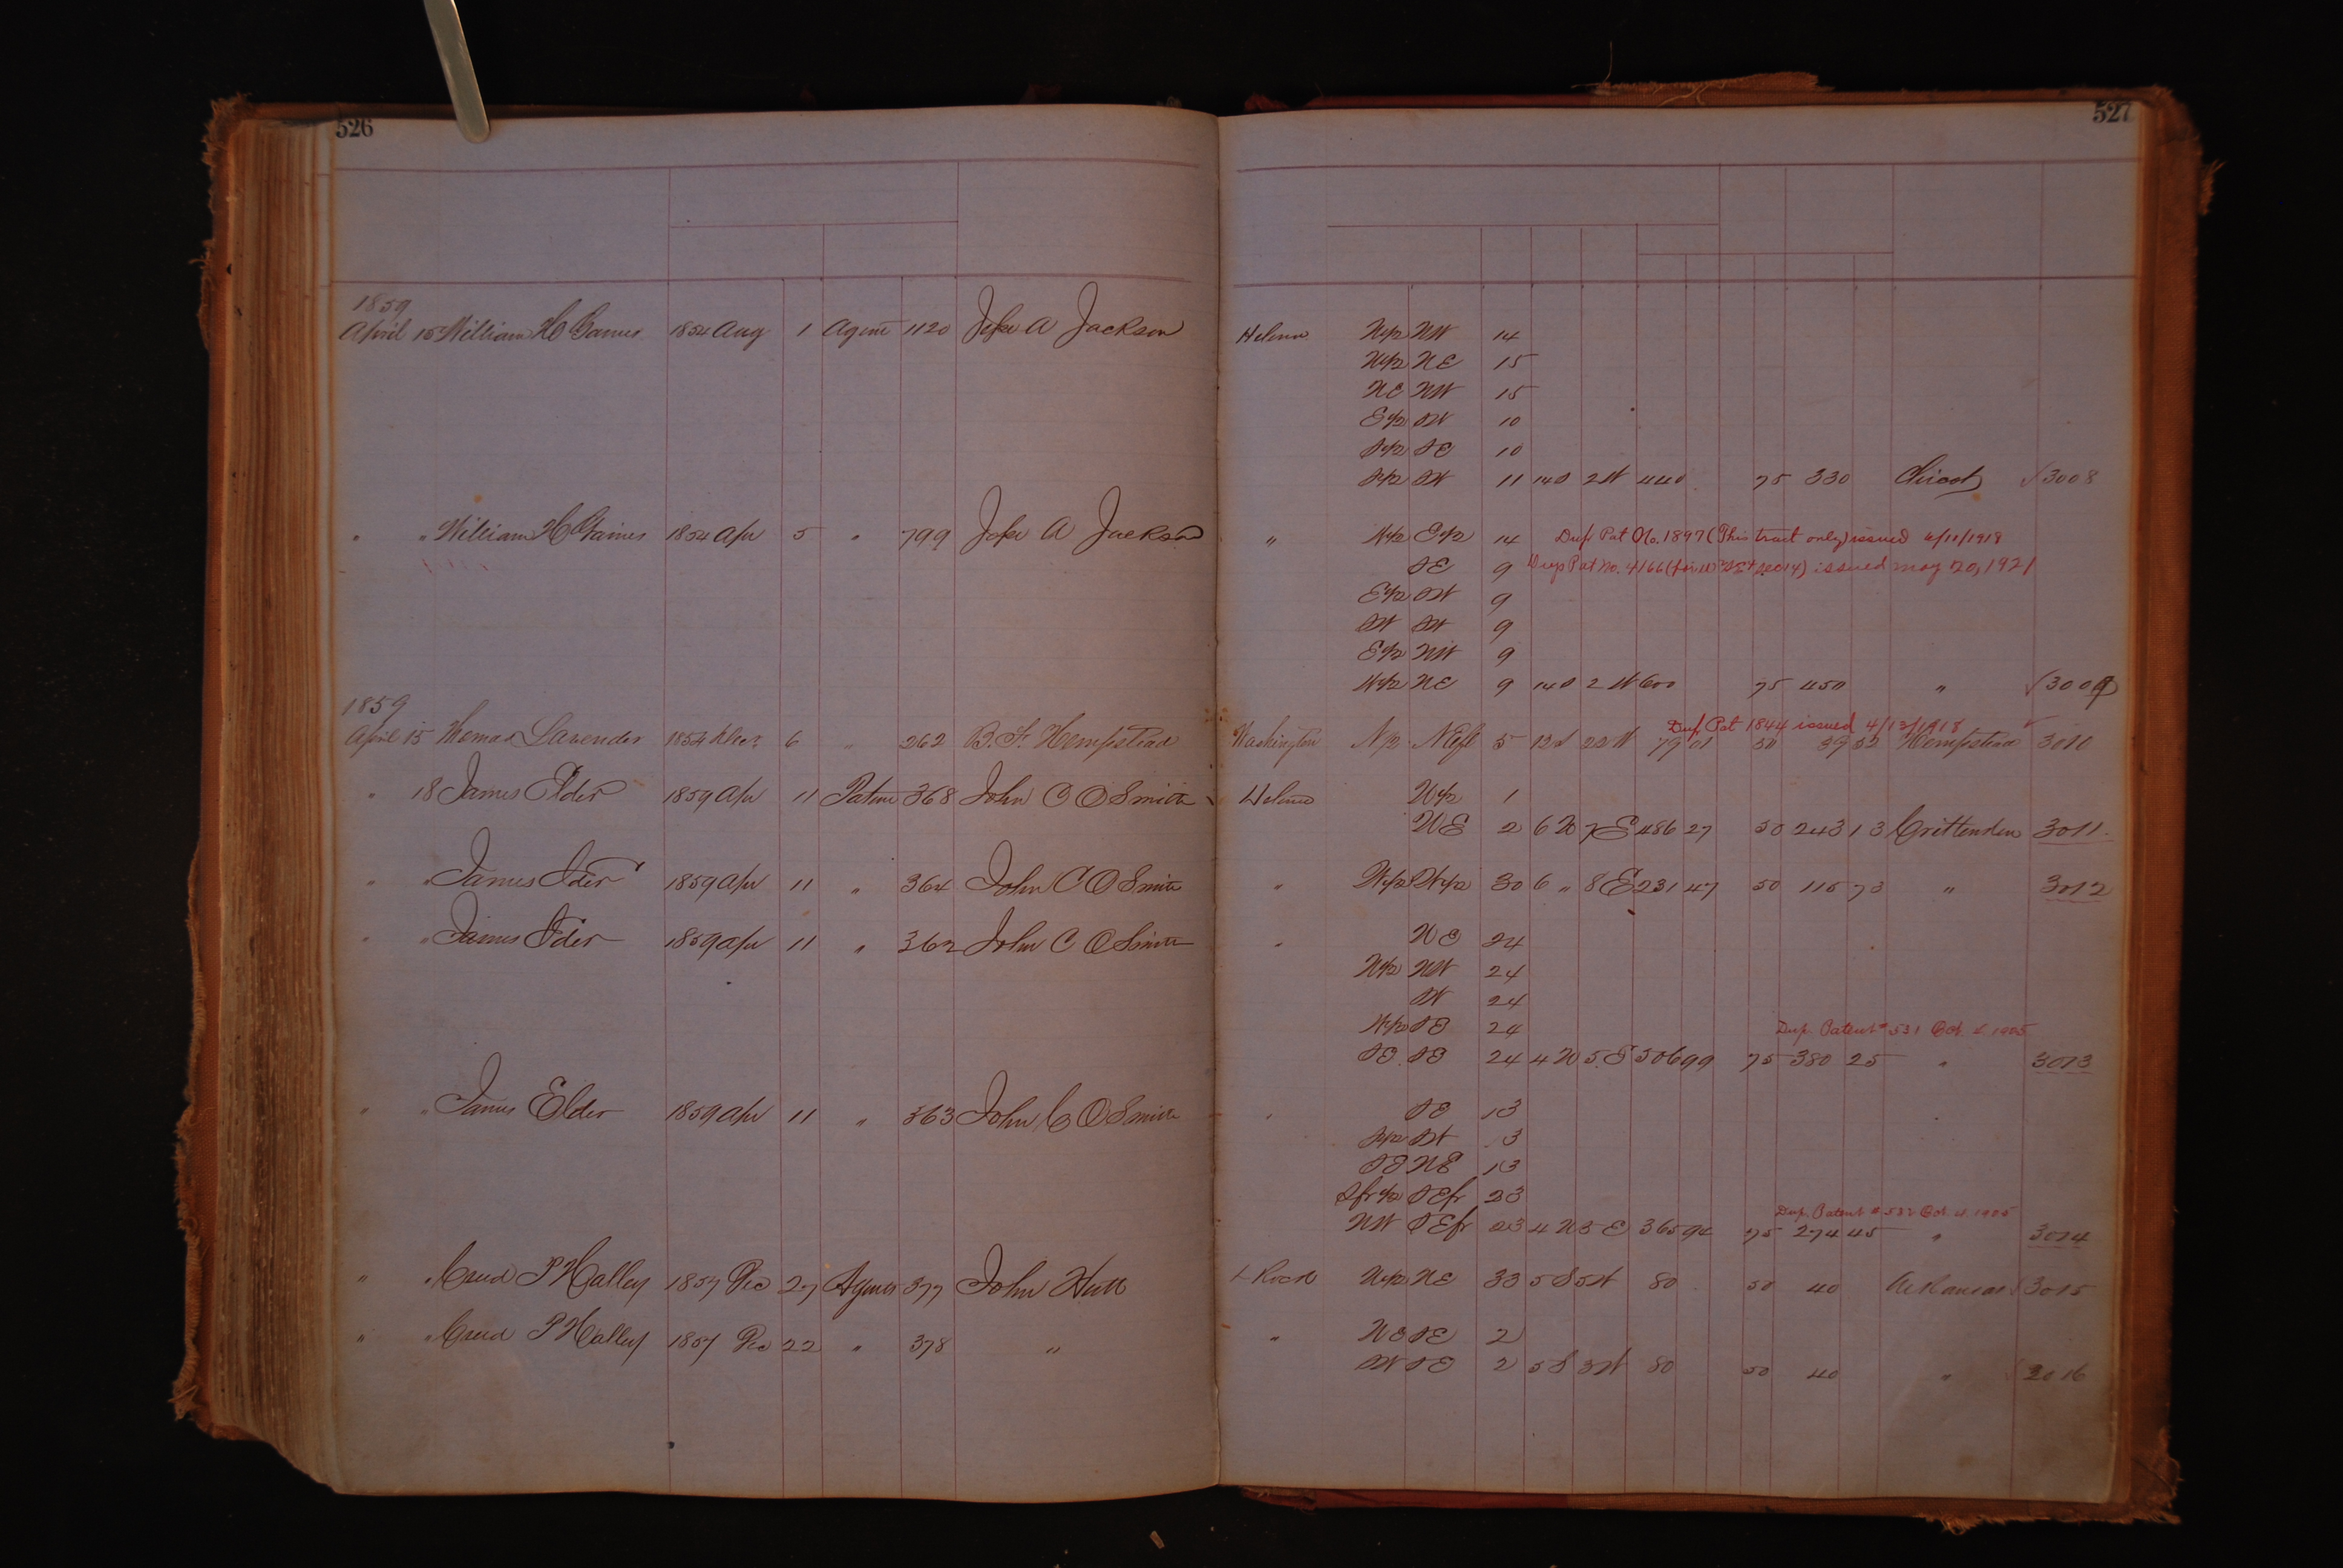 526
527
1859
April 15 William H Gaines 1854 Aug 1 Agent 1120 John A Jackson Helena N½ NW 14
W½ NE 15
NE NW 15
E½ SW 10
S½ SE 10
S½ SW 11 14S 2W 440 75 330 Chicot √3008
" " William H Gaines 1854 Apr 5 " 799 John A Jackson " W½ E½ 14 Dup Pat No. 1897 (This tract only) issued 6/11/1918
SE 9 Dup Pat No. 4166 issued may 20, 1921
E½ SW 9
SW SW 9
E½ NW 9
W½ NE 9 14S 2W 600 75 450 " √3009
1859
Dup Pat 1844 issued 4/13/1918
April 15 Thomas Lavender 1854 6 " 262 B. F. Hempstead Washington N½ NEfl 5 12S 22W 79 01 50 39 52 Hempstead 3010
" 18 James Elder 1859 Apr 11 Patent 368 John C O Smith Helena W½ 1
NE 2 6N 7E 486 27 50 243 13 Crittenden 3011
" " James Elder 1859 Apr 11 " 364 John C O Smith " W½ W½ 30 6 " 8E 231 47 50 115 73 " 3012
" " James Elder 1859 Apr 11 " 362 John C O Smith " NE 24
N½ NW 24
SW 24
W½ SE 24
Dup. Patent # 531 Oct. 4. 1905
SE SE 24 4N 5E 506 99 75 380 25 " 3013
" " James Elder 1859 Apr 11 " 363 John C O Smith " SE 13
S½ SW 13
SE NE 13
Sfr½ SEfr 23
Dup. Patent # 532 Oct. 4. 1905
NW SEfr 23 4N 5E 365 94 75 274 45 " 3014
" " Creed P Halley 1857 Dec 27 Agent 377 John Hutt L Rock N½ NE 33 5S 5W 80 50 40 Arkansas √3015
" " Creed P Halley 1857 Dec 22 " 378 " " NE SE 2
SW SE 2 5S 3W 80 50 40 " √3016